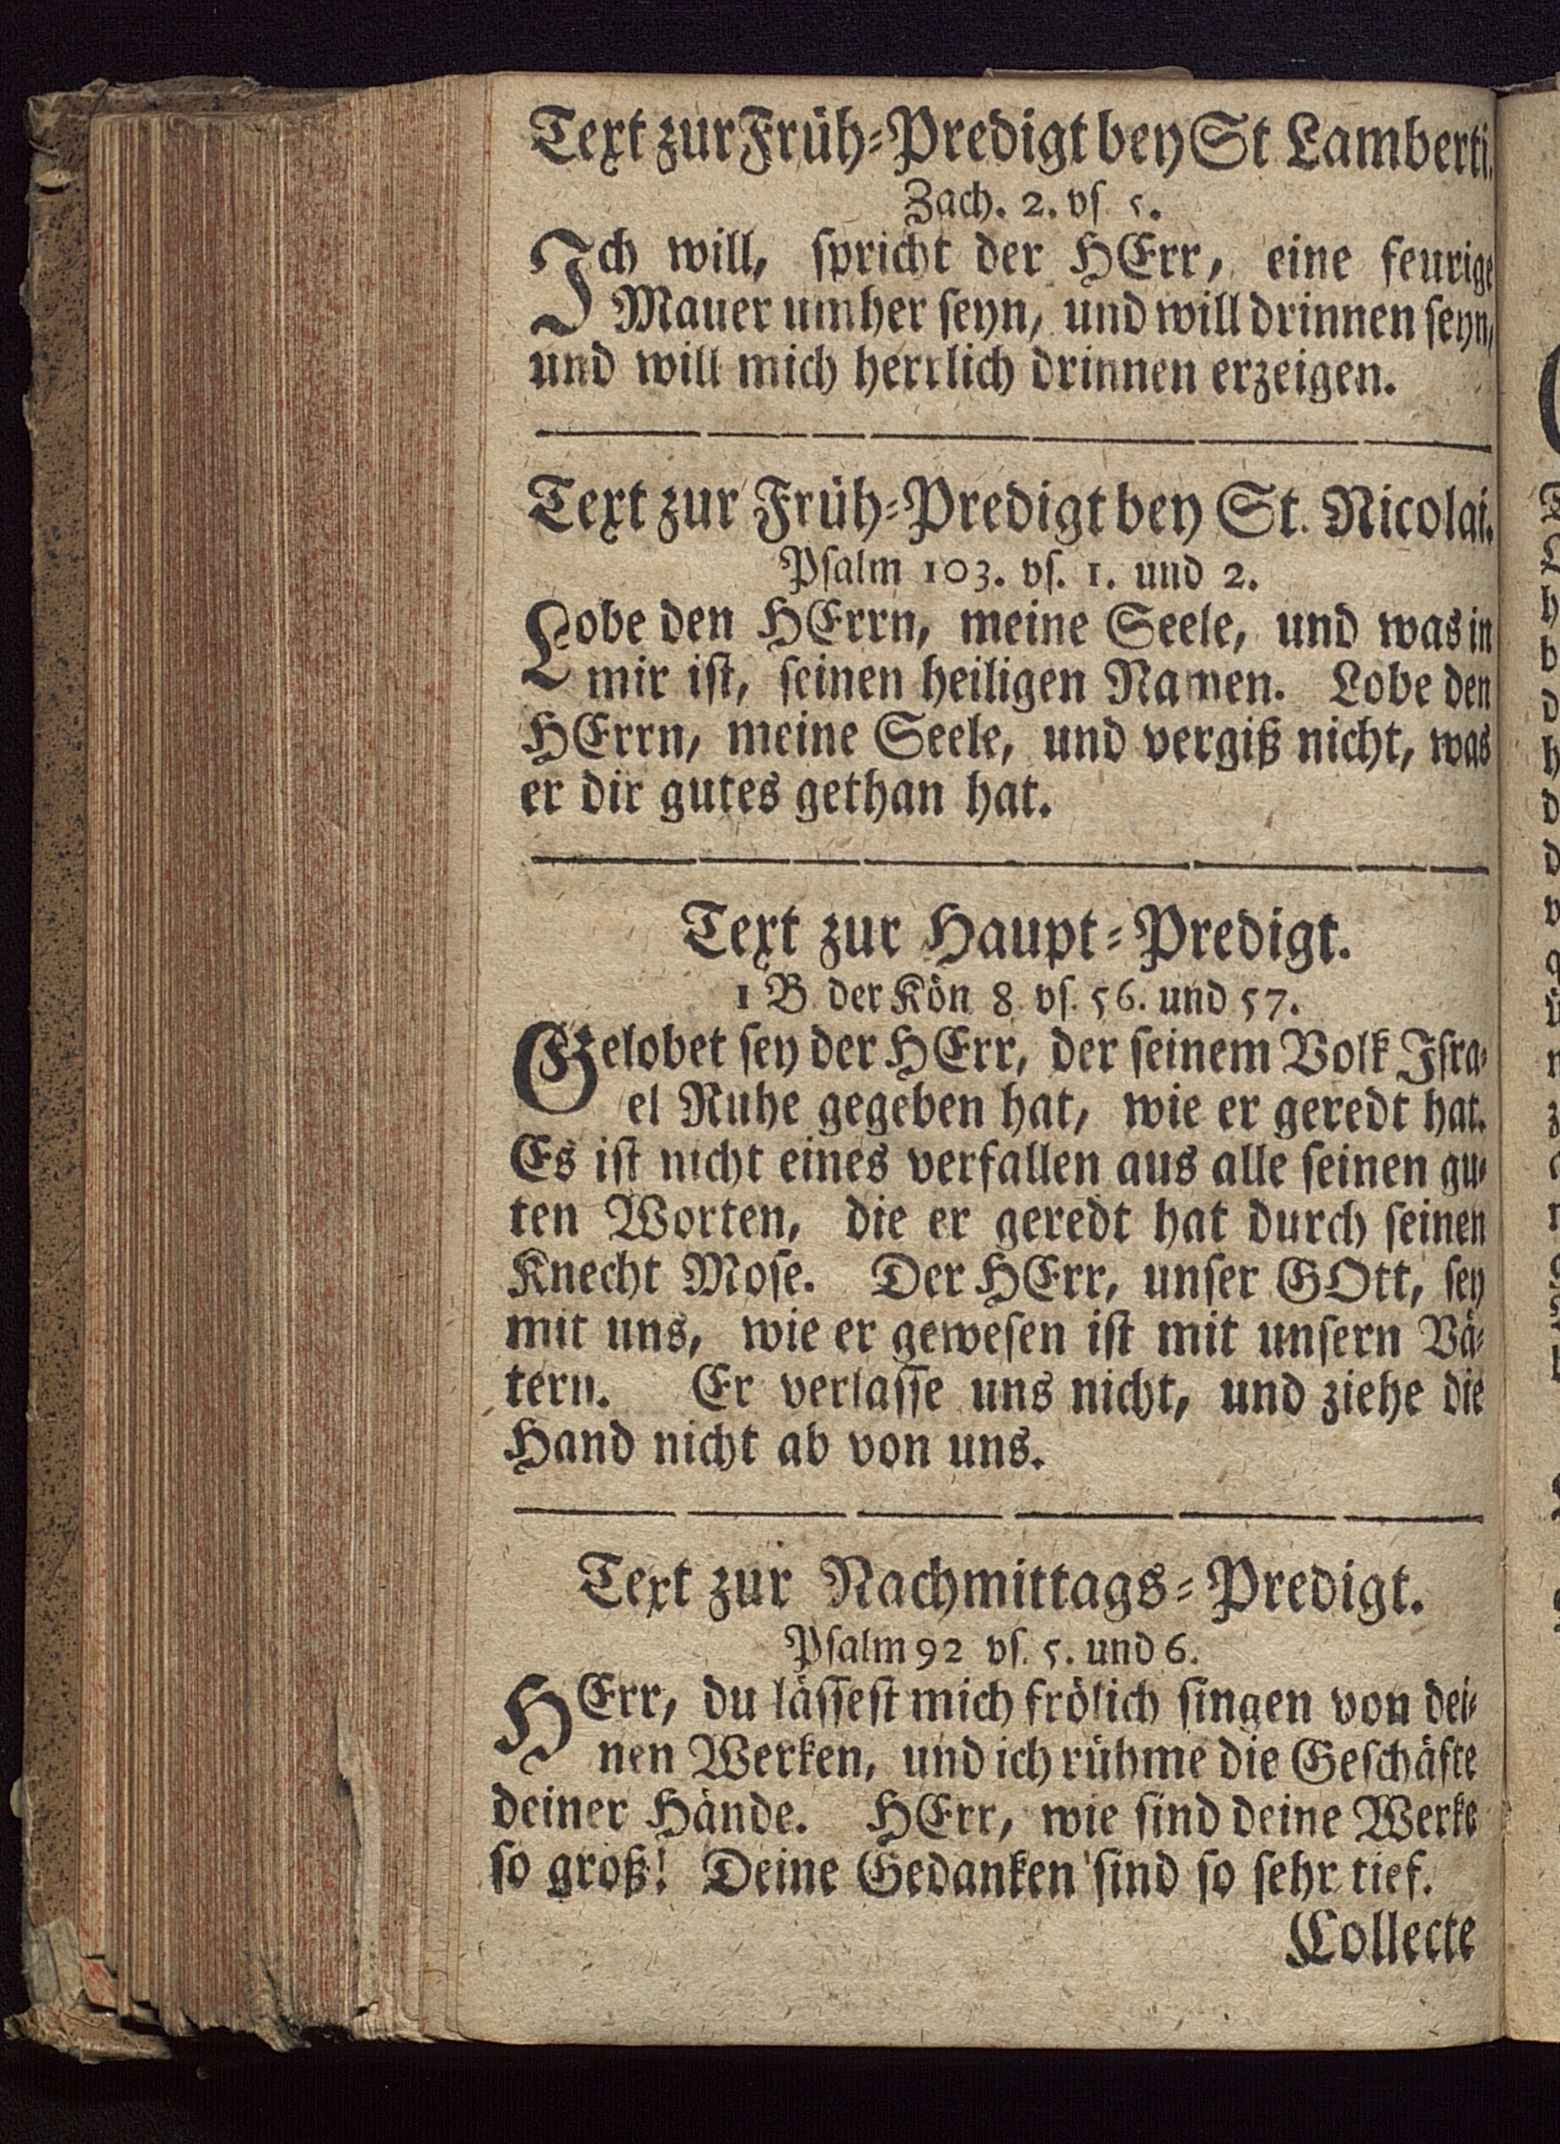 Text zur Früh-Predigt bey St Lamberti.
Zach. 2. vs 5.
Ich will, spricht der HErr, eine feurige
Mauer umher seyn, und will drinnen seyn,
und will mich herrlich drinnen erzeigen.
Text zur Früh-Predigt bey St. Nicolai.
Psalm 103. vs. 1. und 2.
Lobe den HErrn, meine Seele, und was in
mir ist, seinen heiligen Namen. Lobe den
HErrn, meine Seele, und vergiß nicht, was
er dir gutes gethan hat.
Text zur Haupt-Predigt.
1 B der Kön 8 vs. 56. und 57.
Gelobet sey der HErr, der seinem Volk Isra-
el Ruhe gegeben hat, wie er geredt hat.
Es ist nicht eines verfallen aus alle seinen gu-
ten Worten, die er geredt hat durch seinen
Knecht Mose. Der HErr, unser GOtt, sey
mit uns, wie er gewesen ist mit unsern Vä-
tern. Er verlasse uns nicht, und ziehe die
Hand nicht ab von uns.
Text zur Nachmittags-Predigt.
Psalm 92 vs. 5. und 6.
HErr, du lässest mich frölich singen von dei-
nen Werken, und ich rühme die Geschäfte
deiner Hände. HErr, wie sind deine Werke
so groß! Deine Gedanken sind so sehr tief.
Collecte